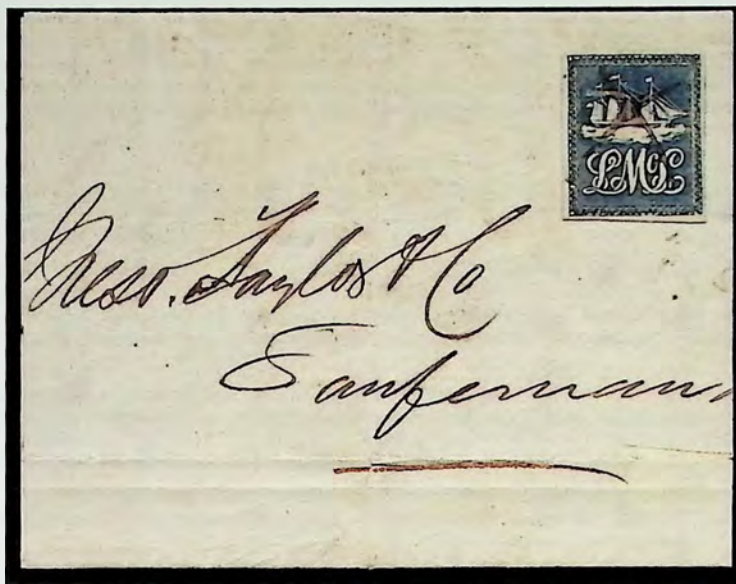 LMcL
Mess. Taylor & Co
Sanfernan